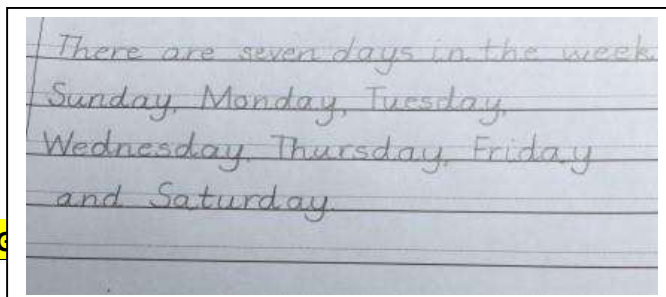 There are seven days in the week.
Sunday, Monday, Tuesday,
Wednesday, Thursday, Friday
and Saturday.